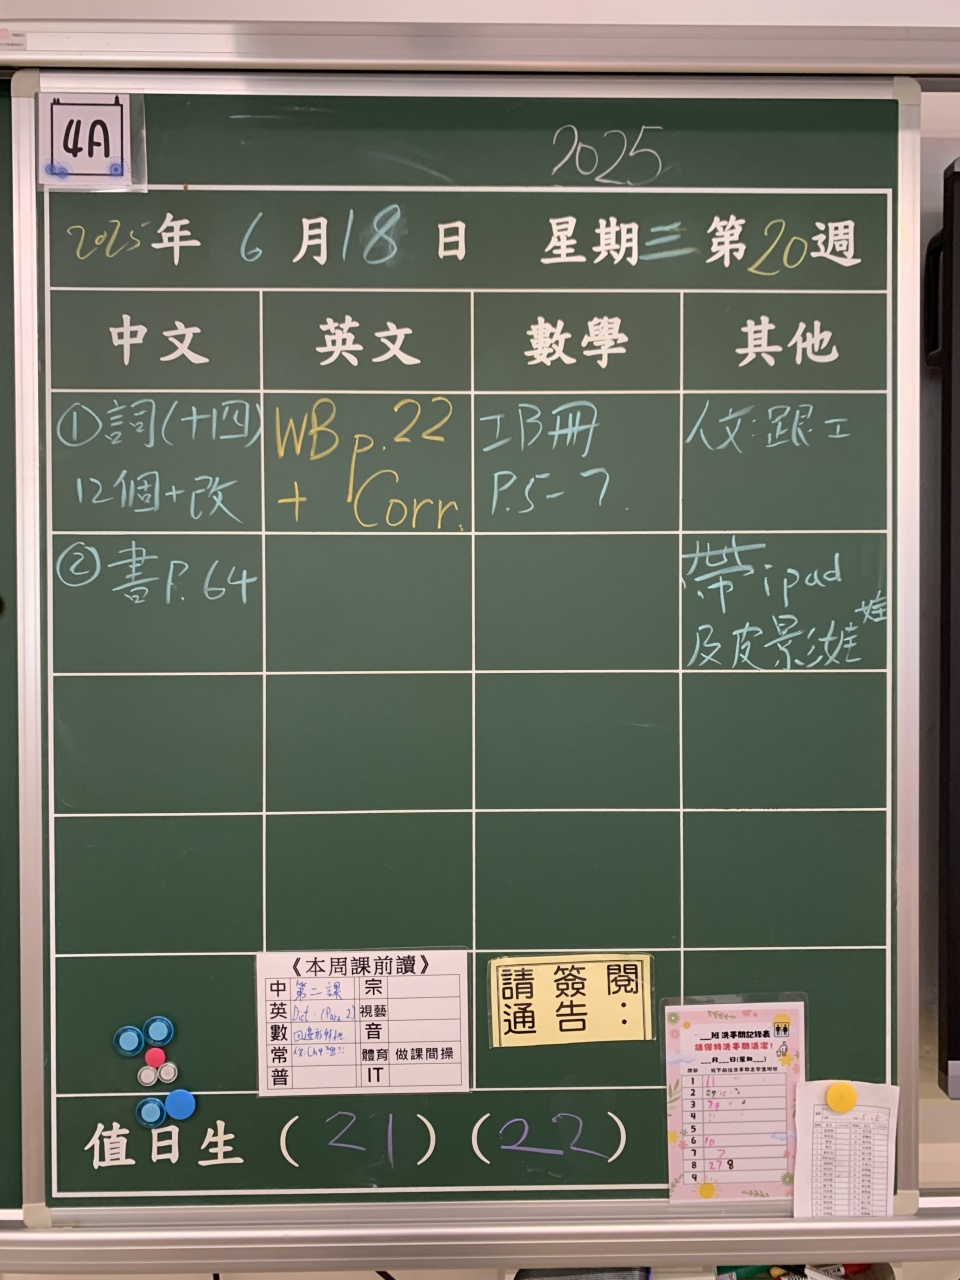 4A
2025
2025年 6月18日 星期三 第20週
中文 英文 數學 其他
①詞(十四)
12個+改
WB p.22
+ Corr.
工B冊
P.5-7.
人文:跟工
②書P.64
帶ipad
及皮影娃娃
《本周課前讀》
中 第二課 宗
英 Dict. (Para 2) 視藝
數 音
常 體育 做課間操
普 IT
請簽閱
通告:
___班洗手間記錄表
請保持洗手間清潔!
___月___日(星期___)
1 11
2
3
4
5
6 10
7 7
8 27 8
9
值日生 (21) (22)